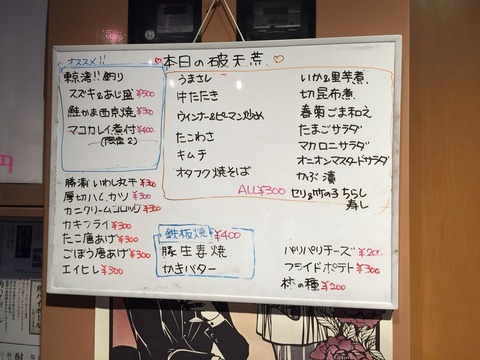 オススメ!!
東京湾!!釣り
スズキ&あじ盛 ¥500
鮭かま西京焼 ¥300
マコカレイ煮付 ¥400
(限定2)
勝浦いわし丸干 ¥300
厚切ハムカツ ¥300
カニクリームコロッケ ¥300
カキフライ ¥300
たこ唐あげ ¥300
ごぼう唐あげ ¥300
エイヒレ ¥300
♡本日の破天荒♡
うまさし
牛たたき
ウィンナー&ピーマン炒め
たこわさ
キムチ
オタフク焼そば
ALL¥300
いか&里芋煮
切昆布煮
春菊ごま和え
たまごサラダ
マカロニサラダ
オニオンマスタードサラダ
かぶ漬
セリ&竹の子ちらし
寿し
鉄板焼 ¥400
豚生姜焼
かきバター
パリパリチーズ ¥200
フライドポテト ¥300
柿の種 ¥200
円